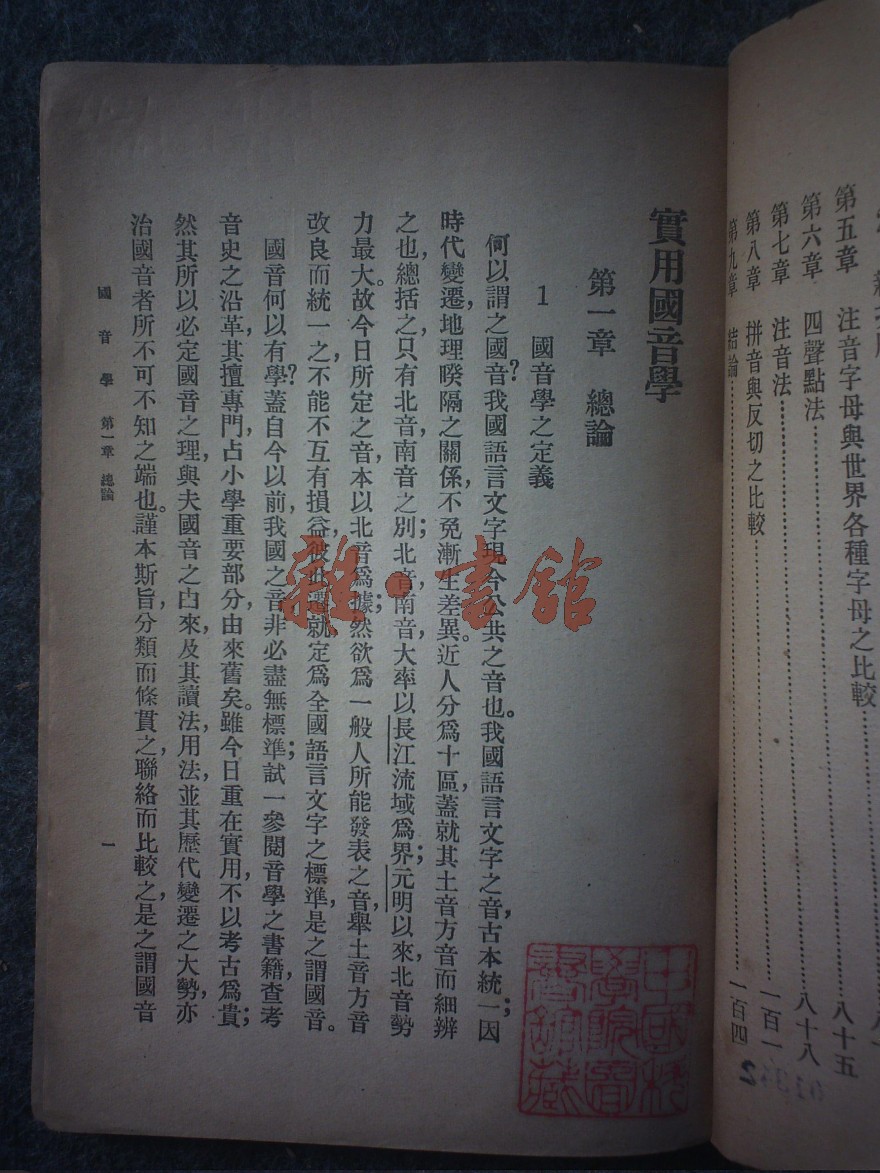 第五章　注音字母與世界各種字母之比較………………八十五
第六章　四聲點法………………八十八
第七章　注音法………………一百一
第八章　拼音與反切之比較………………一百四
第九章　結論
實用國音學
第一章　總論
1　國音學之定義
何以謂之國音?我國語言文字現今公共之音也。我國語言文字之音,古本統一;因
時代變遷,地理暌隔之關係,不免漸生差異。近人分爲十區,蓋就其土音方音而細辨
之也,總括之,只有北音南音之別;北音,南音,大率以長江流域爲界;元明以來,北音勢
力最大。故今日所定之音,本以北音爲據;然欲爲一般人所能發表之音,舉土音方音
改良而統一之,不能不互有損益,彼此遷就,定爲全國語言文字之標準,是之謂國音。
國音何以有學?蓋自今以前,我國之音非必盡無標準;試一參閱音學之書籍,查考
音史之沿革,其擅專門,占小學重要部分,由來舊矣。雖今日重在實用,不以考古爲貴;
然其所以必定國音之理,與夫國音之由來,及其讀法,用法,並其歷代變遷之大勢,亦
治國音者所不可不知之端也。謹本斯旨,分類而條貫之,聯絡而比較之,是之謂國音
國音學　第一章　總論
一
雜·書館